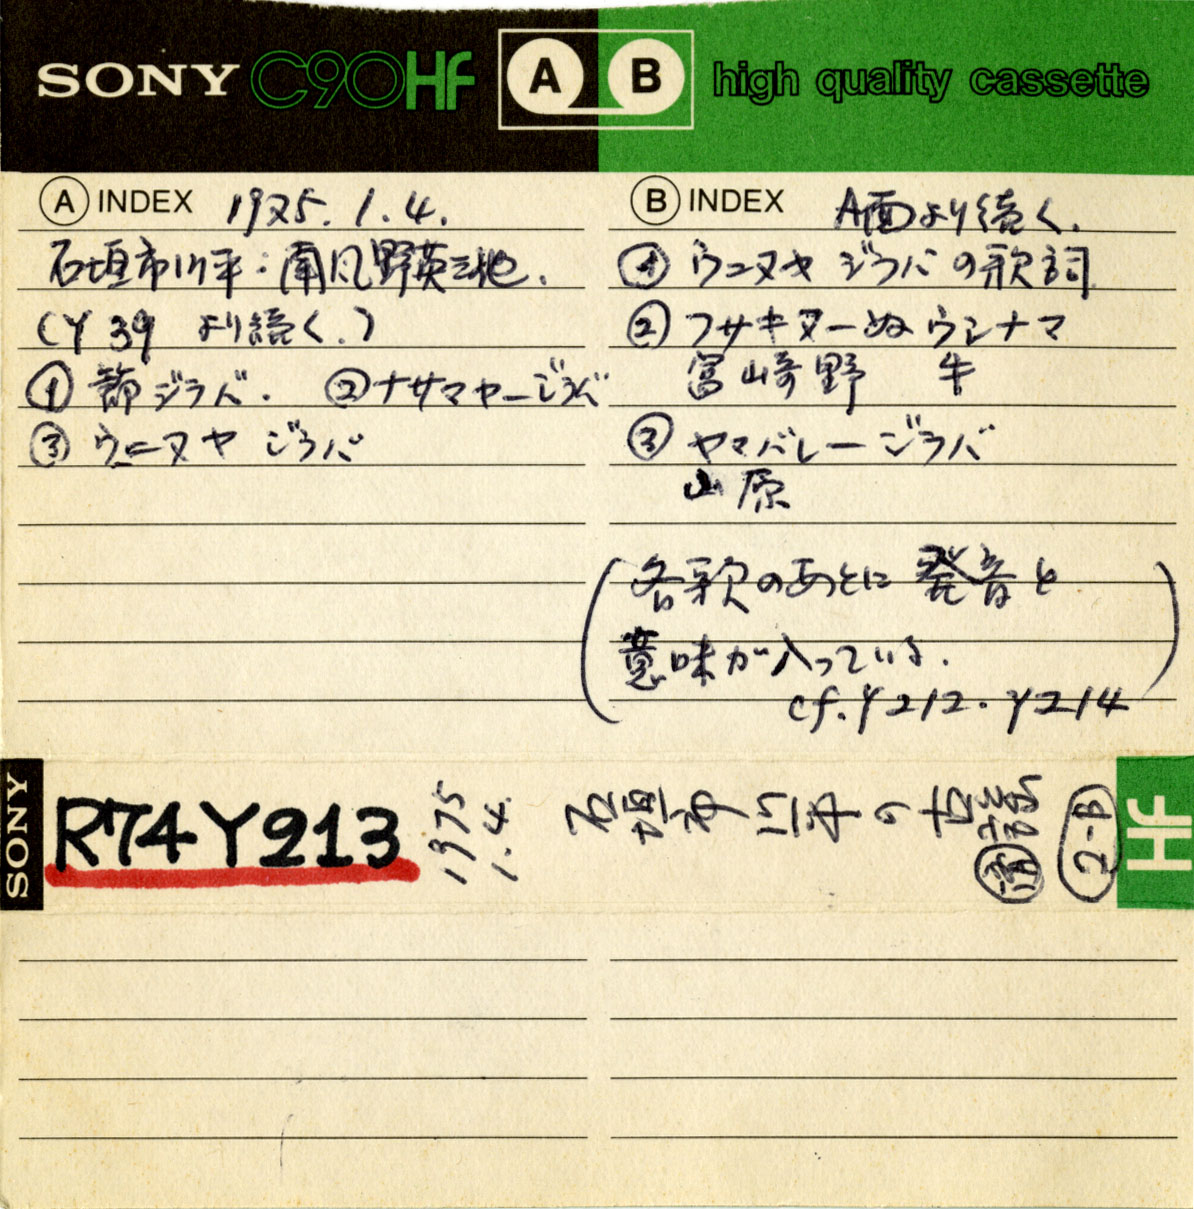 SONY C90HF A B high quality cassette
A INDEX 1975. 1. 4.
石垣市川平:南風野英三他.
(Y39 より続く.)
① 節ジラバ. ② ナサマヤージラバ
③ ウニヌヤ ジラバ
B INDEX A面より続く.
① ウニヌヤ ジラバの歌詞
② フサキヌーぬウシナマ
富崎野 牛
③ ヤマバレージラバ
山原
(各歌のあとに発音と
意味が入っている.
cf. Y212. Y214)
SONY
R74Y213
1975
1.4.
石垣市川平の古謡
2-B
HF